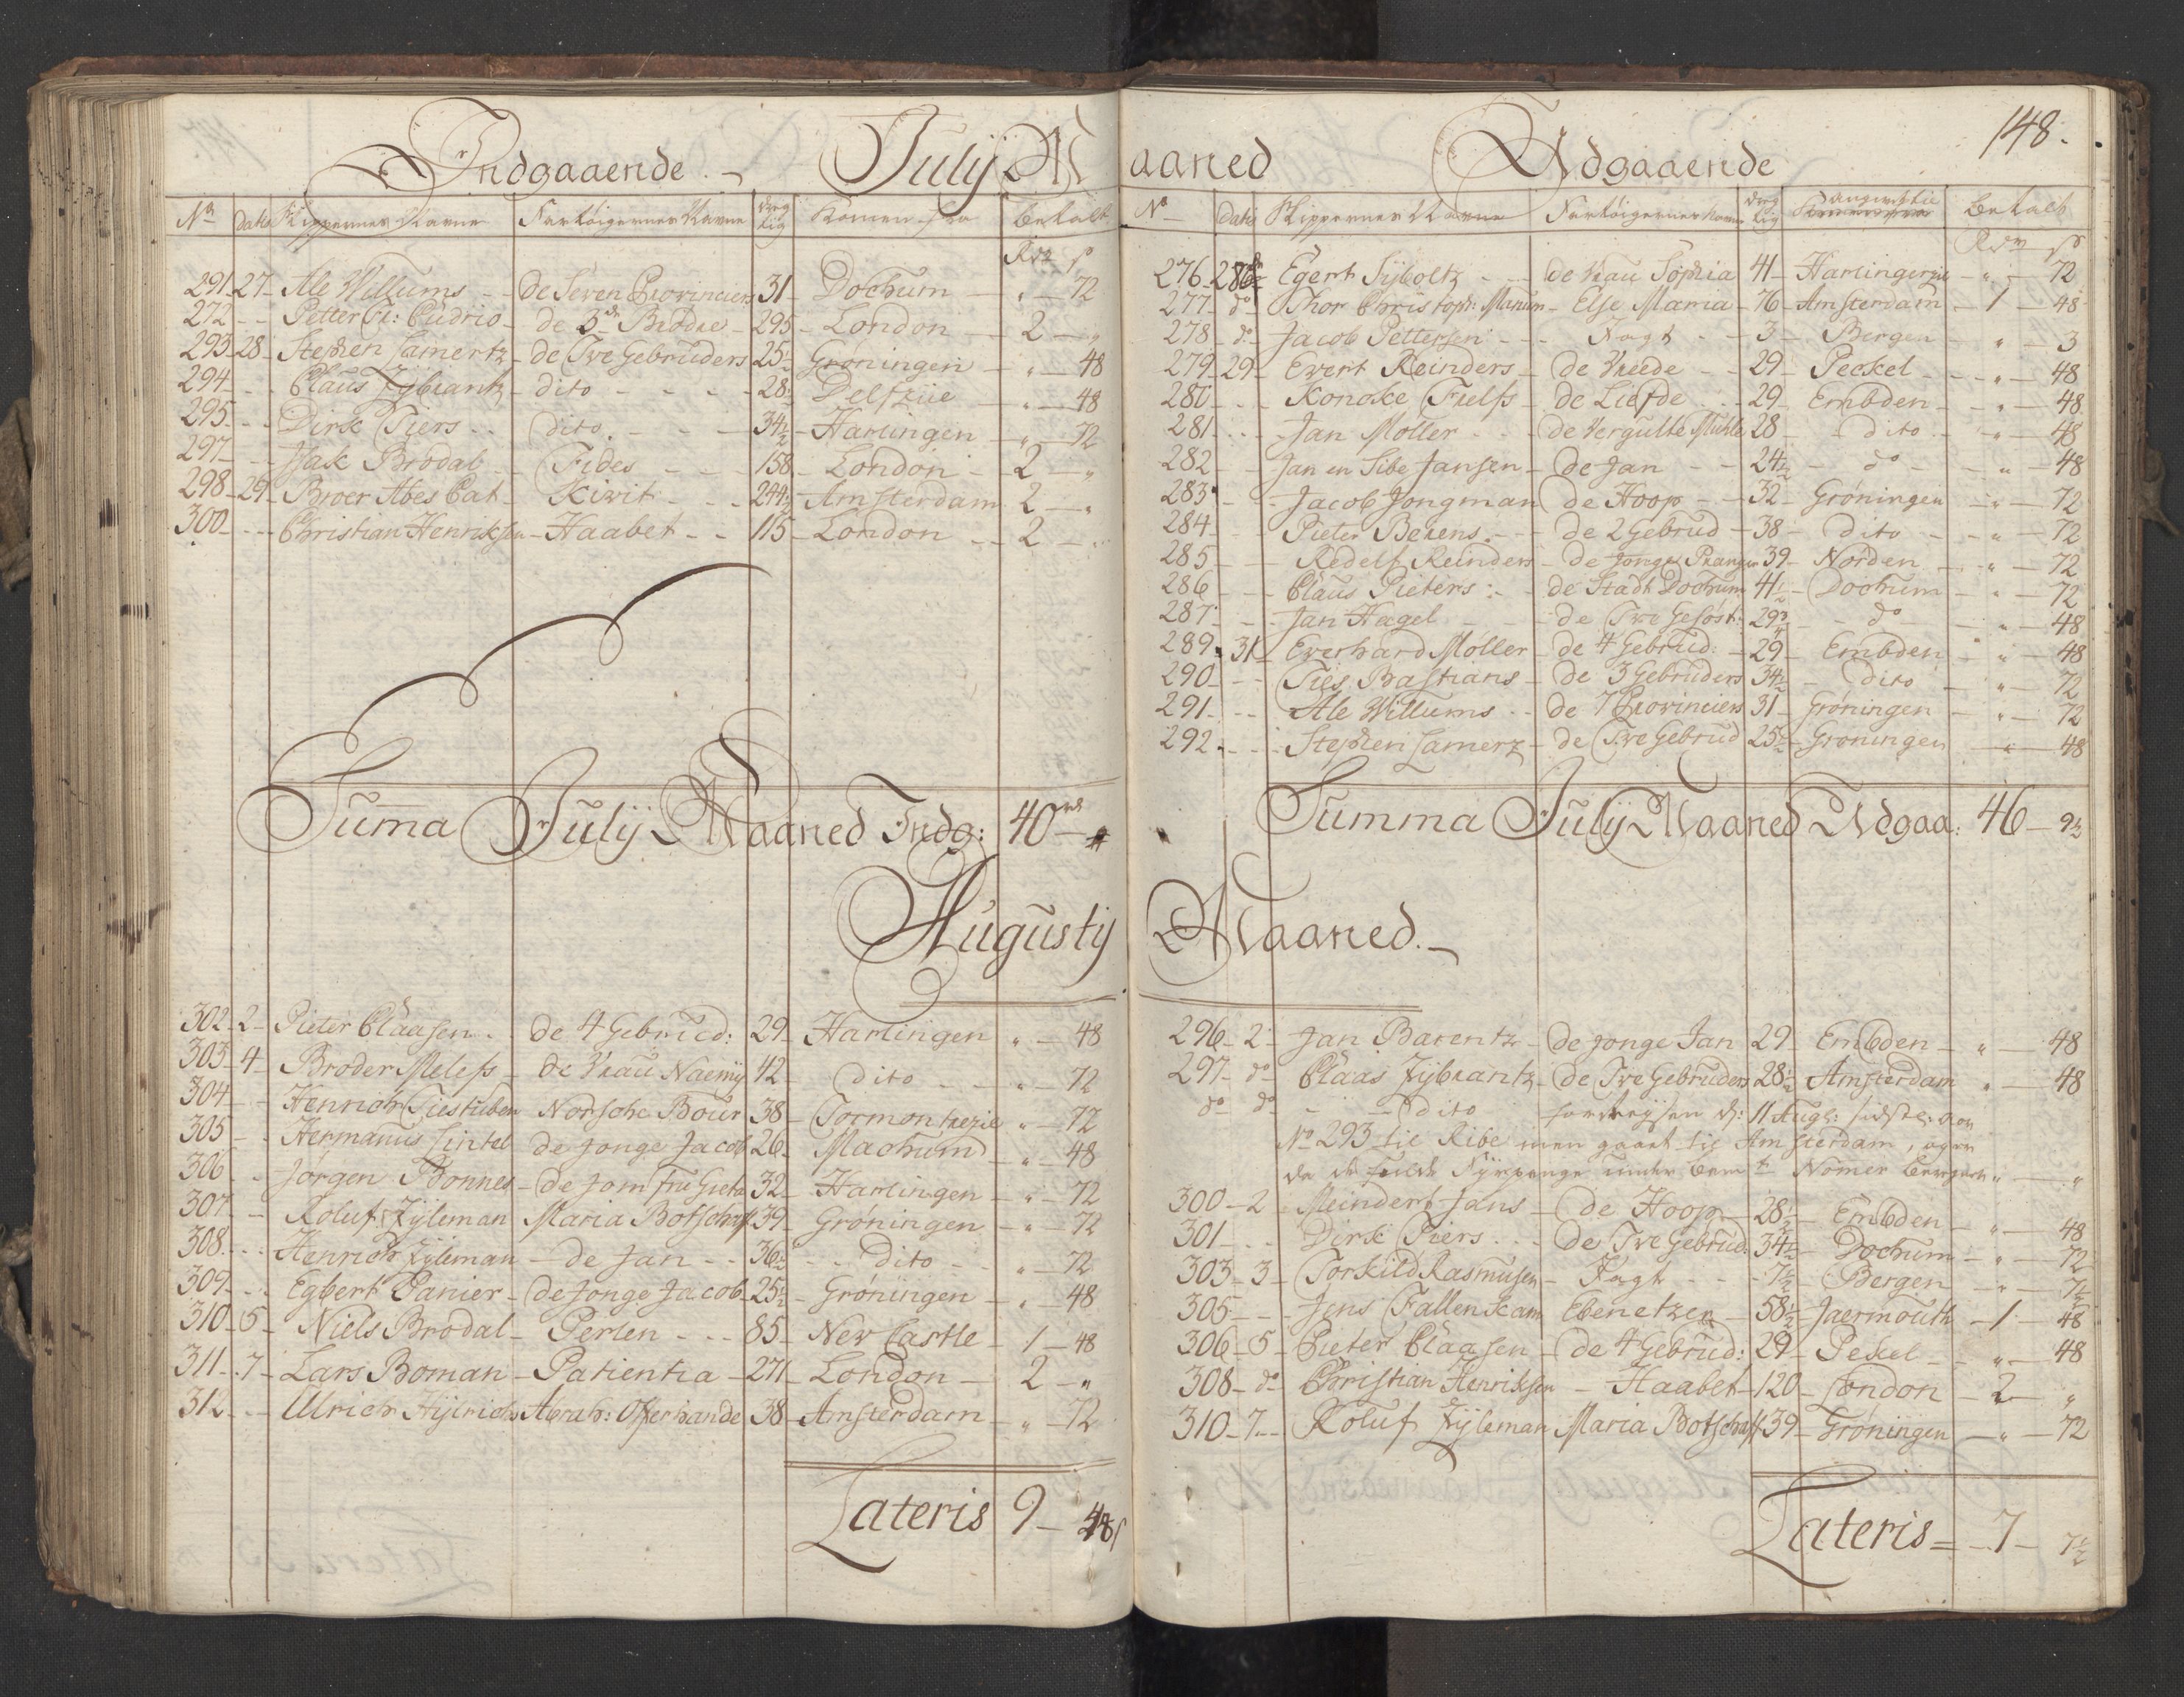 Indgaaende. Julij M
No Datis Skippernes Navne Fartøigernes Navne Dreg tig Komen fra Betalt
Rdr ß
291 27 Ale Willums de Seven Provincier 31 Dochum " 72
272 Petter de 3de Brødre 295 London 2 "
293 28 Stephen Lamertz de Tve Gebruders 25½ Grøningen " 48
294 Claus Zijbrantz dito 28½ Delfziie " 48
295 Dirk Piers dito 34½ Harlingen " 72
297 Isak Brodal Fides 158 London 2 "
298 29 Broer Abes Cat Kivit 244½ Amsterdam 2 "
300 Christian Henriksen Haabet 115 London 2
Suma Julij Maaned Indg: 40 rd "
Augustij
302 2 Pieter Claasen de 4 Gebrud: 29 Harlingen " 48
303 4 Broder Melefs de Vrau Naemij 42 dito " 72
304 Henrich Norsche Bour 38 " 72
305 Hermanus Lintel de Jonge Jacob 26 Machum " 48
306 Jørgen Bonnes de Jomfru Greta 32 Harlingen " 72
307 Roluf Zijleman Maria Botschaf 39 Grøningen " 72
308 Henrich Zijleman de Jan 36½ dito " 72
309 Egbert Panier de Jonge Jacob 25½ Grøningen " 48
310 5 Niels Brodal Perlen 85 New Castle 1 48
311 7 Lars Boman Patientia 271 London 2 "
312 Ulrich Hijlrichs Abrah: Offerhande 38 Amsterdam " 72
Lateris 9 48
148.
aaned Udgaaende
No Datis Skippernes Navne Fartøigernes Navne Dreg tig angivet til Betalt
Rdr ß
276 28 Egert Sijboltz de Vrau Sophia 41 Harlingen " 72
277 do Thor Christoph: Else Maria 76 Amsterdam 1 48
278 do Jacob Pettersen Jagt 3 Bergen " 3
279 29 Evert Reinders de Vrede 29 Peckel " 48
280 Konoke Frelfs de Liefde 29 Embden " 48
281 Jan Møller de Vergulte Mühle 28 dito " 48
282 Jan en Sibe Jansen de Jan 24½ do " 48
283 Jacob Jongman de Hoop 32 Grøningen " 72
284 Pieter Berens de 2 Gebrud 38 dito " 72
285 Redelf Reinders de Jonge Pranger 39 Norden " 72
286 Claus Pieters de Stadt Dochum 41½ Dochum " 72
287 Jan Hagel de Tve Gesøst: 29¾ do " 48
289 31 Everhard Møller de 4 Gebrud: 29 Embden " 48
290 Ties Bastians de 3 Gebruders 34½ dito " 72
291 Ale Willums de 7 Provinciers 31 Grøningen " 72
292 Stephen Lamerz de Tve Gebrud 25½ Grøningen " 48
Summa Julij Maaned Udgaa: 46 9½
Maaned.
296 2 Jan Barentz de Jonge Jan 29 Embden " 48
297 do Claas Zijbrantz de Tve Gebruders 28½ Amsterdam " 48
do do dito d: 11 Aug:
No 293 til Ribe men gaaet til Amsterdam,
de de fulde Fyrpenge under bemte Nomer "
300 2 Meindert Jans de Hoop 28½ Embden " 48
301 Dirk Piers de Tve Gebrud: 34½ Dochum " 72
303 3 Torkild Rasmusen Jagt 7½ Bergen " 7½
305 Jens Fallenkam Ebenetzer 58½ Jaermouth 1 48
306 5 Pieter Claasen de 4 Gebrud: 29 Pekel " 48
308 do Christian Henriksen Haabet 120 London 2 "
310 7 Roluf Zijleman Maria Botschaf 39 Grøningen " 72
Lateris 7 7½